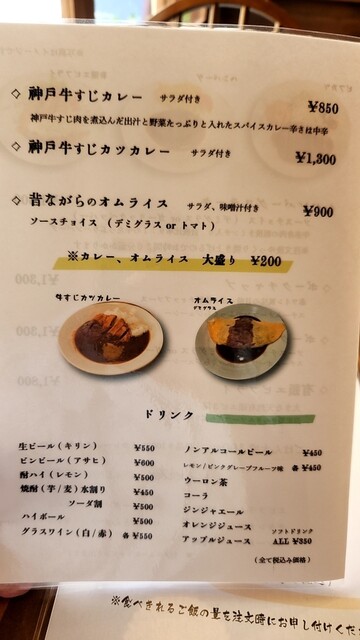 ◇ 神戸牛すじカレー サラダ付き ¥850
神戸牛すじ肉を煮込んだ出汁と野菜たっぷりと入れたスパイスカレー辛さは中辛
◇ 神戸牛すじカツカレー サラダ付き ¥1,300
◇ 昔ながらのオムライス サラダ、味噌汁付き ¥900
ソースチョイス (デミグラス or トマト)
※カレー、オムライス 大盛り ¥200
牛すじカツカレー
オムライス
デミグラス
ドリンク
生ビール(キリン) ¥550
ビンビール(アサヒ) ¥600
酎ハイ(レモン) ¥500
焼酎(芋/麦)水割り ¥450
ソーダ割 ¥500
ハイボール ¥500
グラスワイン(白/赤) 各¥550
ノンアルコールビール ¥450
レモン/ピンクグレープフルーツ味 各¥450
ウーロン茶
コーラ
ジンジャエール
オレンジジュース ソフトドリンク
アップルジュース ALL ¥350
(全て税込み価格)
※食べきれるご飯の量を注文時にお申し付けくだ